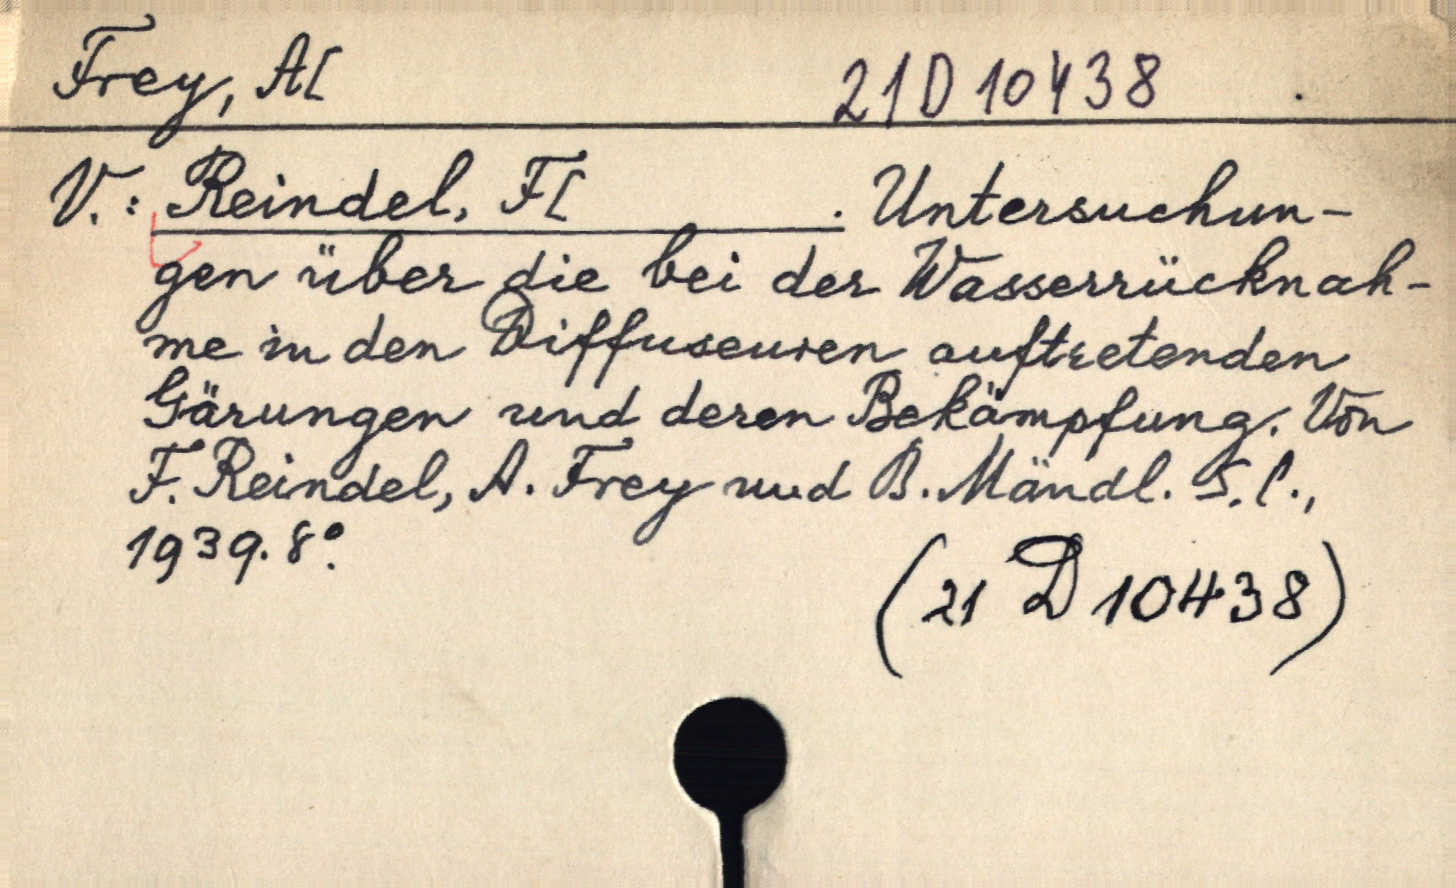 Frey, A[ 21 D 10438 .
V.: Reindel, F[ . Untersuchun-
gen über die bei der Wasserrücknah-
me in den Diffuseuren auftretenden
Gärungen und deren Bekämpfung. Von
F. Reindel, A. Frey und B. Mändl. S.l.,
1939. 8°.
(21 D 10438)